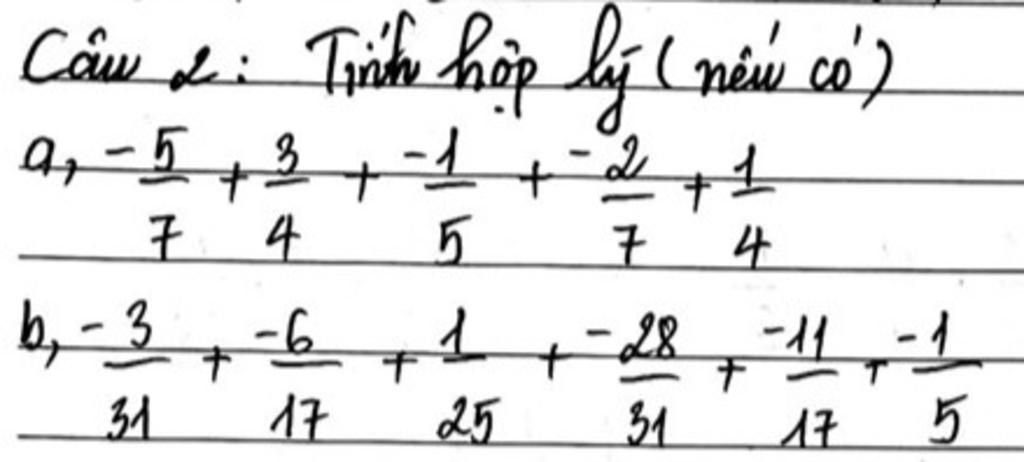 Câu 2: Tính hợp lý (nếu có)
a, -5/7 + 3/4 + -1/5 + -2/7 + 1/4
b, -3/31 + -6/17 + 1/25 + -28/31 + -11/17 + -1/5